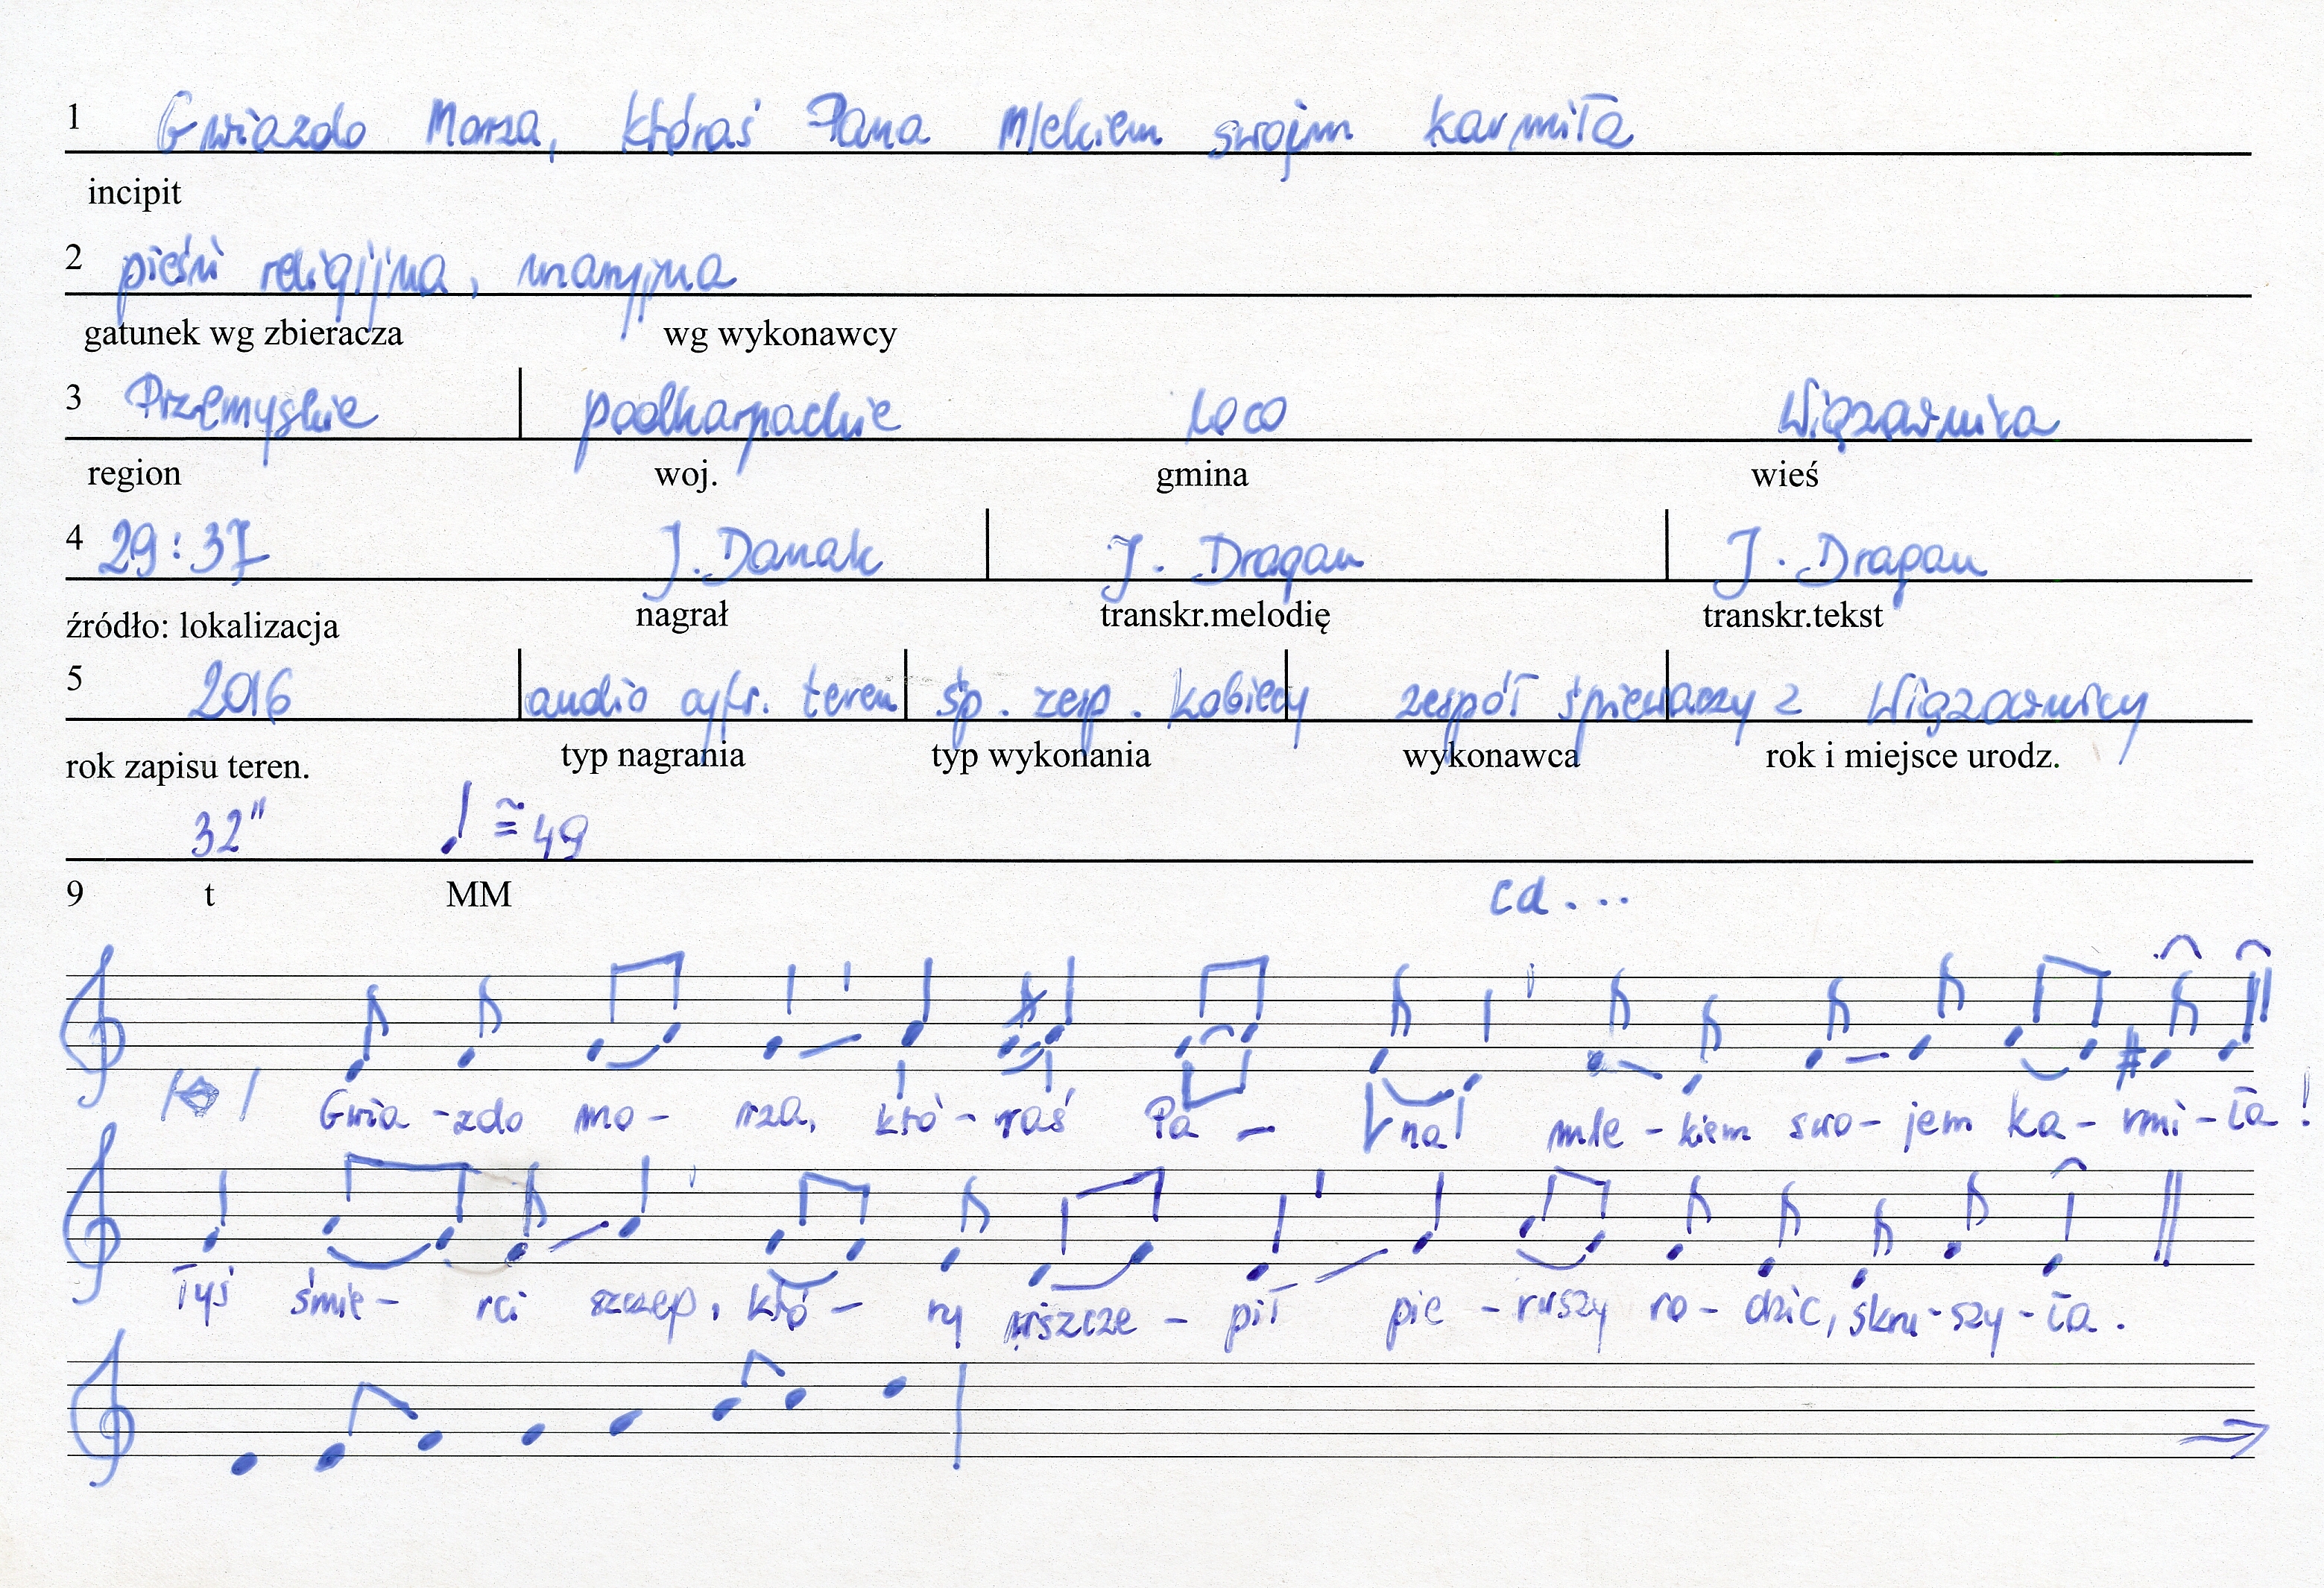 1 Gwiazdo Morza, któraś Pana Mlekiem swojm karmiła
incipit
2 pieśń religijna, maryjna
gatunek wg zbieracza wg wykonawcy
3 Przemyskie podkarpackie loco Wiązownica
region woj. gmina wieś
4 29:37 J. Danak J. Dragan J. Dragan
źródło: lokalizacja nagrał transkr.melodię transkr.tekst
5 2016 audio cyfr. teren śp. zesp. kobiecy zespół śpiewaczy z Wiązownicy
rok zapisu teren. typ nagrania typ wykonania wykonawca rok i miejsce urodz.
32" ♩ ≅ 49
9 t MM
cd...
Gwia-zdo mo-rza, któ-raś Pa-na mle-kiem swo-jem ka-rmi-ła!
Tyś śmie-rci szczep, któ-ry wszcze-pił pie-rwszy ro-dzic, skru-szy-ła.